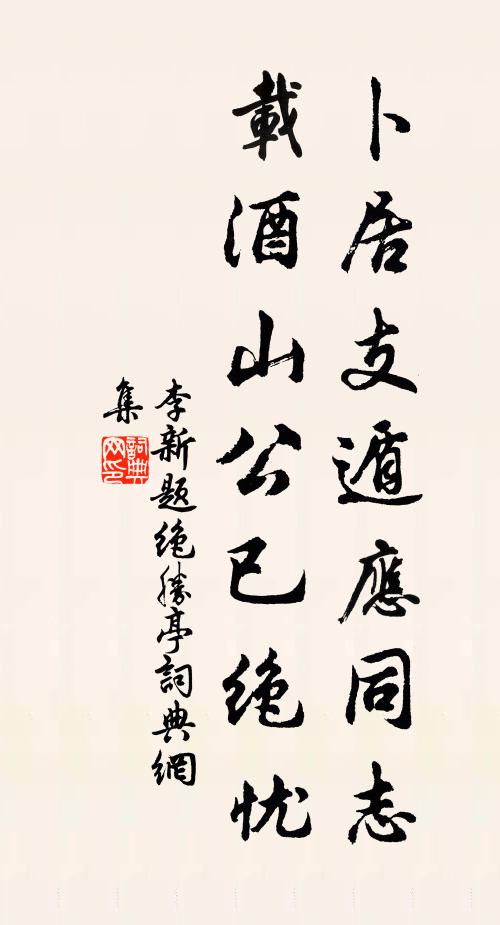 卜居支遁應同志
載酒山公已絶忧
李新題絶勝亭詞典網
集
詞典網印